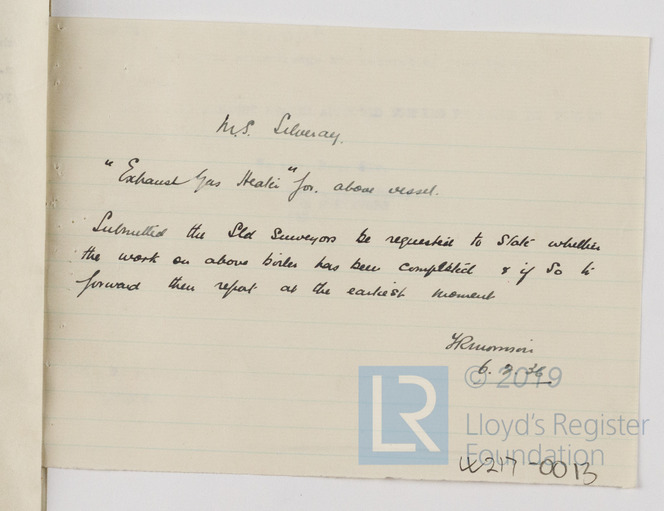 M.S. Silveray.
"Exhaust Gas Heater" for above vessel.
Submitted the Sld Surveyors be requested to state whether
the work on above boiler has been completed & if so to
forward their report at the earliest moment
HRMorrison
6. 36
© 2019
LR
Lloyd's Register
Foundation
W217-0013